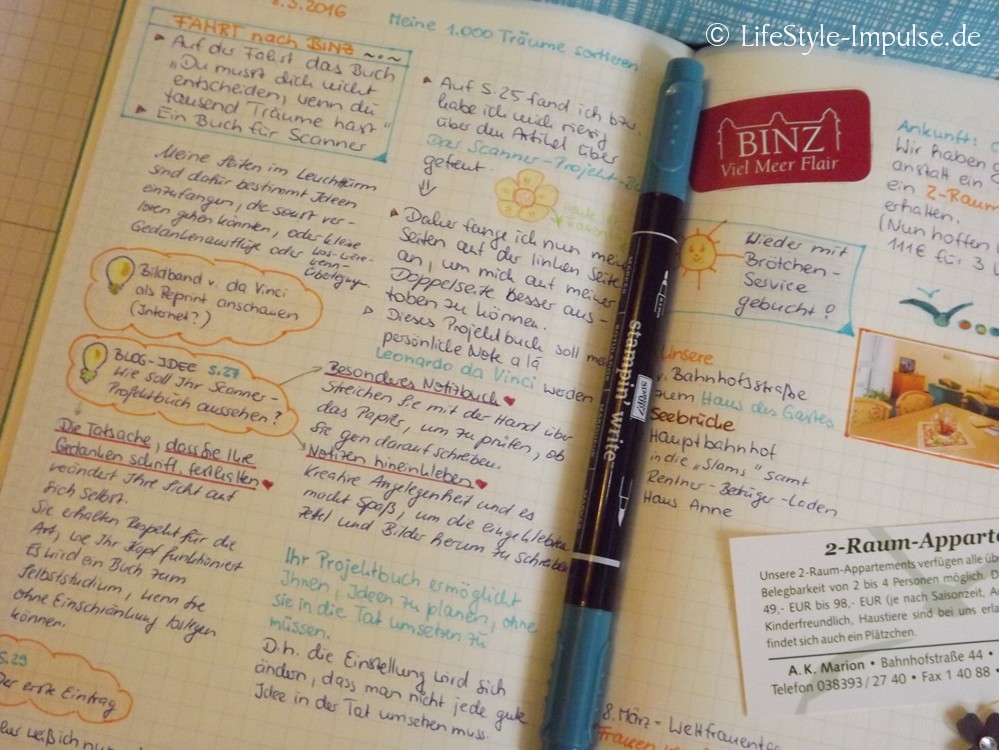 © LifeStyle-Impulse.de
8.3.2016
Meine 1.000 Träume sortieren
FAHRT nach BINZ ~.~.
▸ Auf der Fahrt das Buch
"Du musst dich nicht
entscheiden, wenn du
tausend Träume hast"
▸ Ein Buch für Scanner
Meine Seiten im Leuchtturm
sind dafür bestimmt Ideen
einzufangen, die sonst ver-
loren gehen können, oder kleine
Gedankenausflüge oder Was-wäre-
wenn-
Überlegung
Bildband v. da Vinci
als Reprint anschauen
(Internet?)
BLOG-IDEE S.27
Wie soll Ihr Scanner-
Projektbuch aussehen?
Die Tatsache, dass Sie Ihre
Gedanken schriftl. festhalten ♥
verändert Ihre Sicht auf
sich selbst.
Sie erhalten Respekt für die
Art, wie Ihr Kopf funktioniert
Es wird ein Buch zum
Selbststudium, wenn sie
ohne Einschränkung
können.
S.29
Der erste Eintrag
▸ Auf S.25 fand ich bzw.
habe ich mich riesig
über den Artikel über
Das Scanner-Projekt-Bu
gefreut.
⇓
▸ Daher fange ich nun meine
Seiten auf der linken Seite
an, um mich auf meiner
Doppelseite besser aus-
toben zu können.
▹ Dieses Projektbuch soll
persönliche Note a lá
Leonardo da Vinci werden
Besonderes Notizbuch ♥
Streichen Sie mit der Hand über
das Papier, um zu prüfen, ob
Sie gern darauf schreiben.
Notizen hineinkleben ♥
Kreative Angelegenheit und es
macht Spaß, um die eingeklebten
Zettel und Bilder herum zu schreiben
Ihr Projektbuch ermöglicht
Ihnen, Ideen zu planen, ohne
sie in die Tat umsetzen zu
müssen.
D.h. die Einstellung wird sich
ändern, dass man nicht jede gute
Idee in der Tat umsetzen muss.
stampin' write™
BINZ
Viel Meer Flair
Ankunft:
Wir haben
anstatt ein
ein 2-Raum
erhalten.
(Nun hoffen
111€ für 3
Wieder mit
Brötchen-
Service
gebucht!
Unsere
v. Bahnhofsstraße
zum Haus des Gastes
Seebrücke
Hauptbahnhof
in die "Slams" samt
Rentner-Betrüger-Laden
Haus Anne
2-Raum-Apparte
Unsere 2-Raum-Appartements verfügen alle üb
Belegbarkeit von 2 bis 4 Personen möglich. D
49,- EUR bis 98,- EUR (je nach Saisonzeit, A
Kinderfreundlich, Haustiere sind bei uns erla
findet sich auch ein Plätzchen.
A. K. Marion • Bahnhofstraße 44 •
Telefon 038393/27 40 • Fax 1 40 88
8. März - Weltfrauentag
Frauen